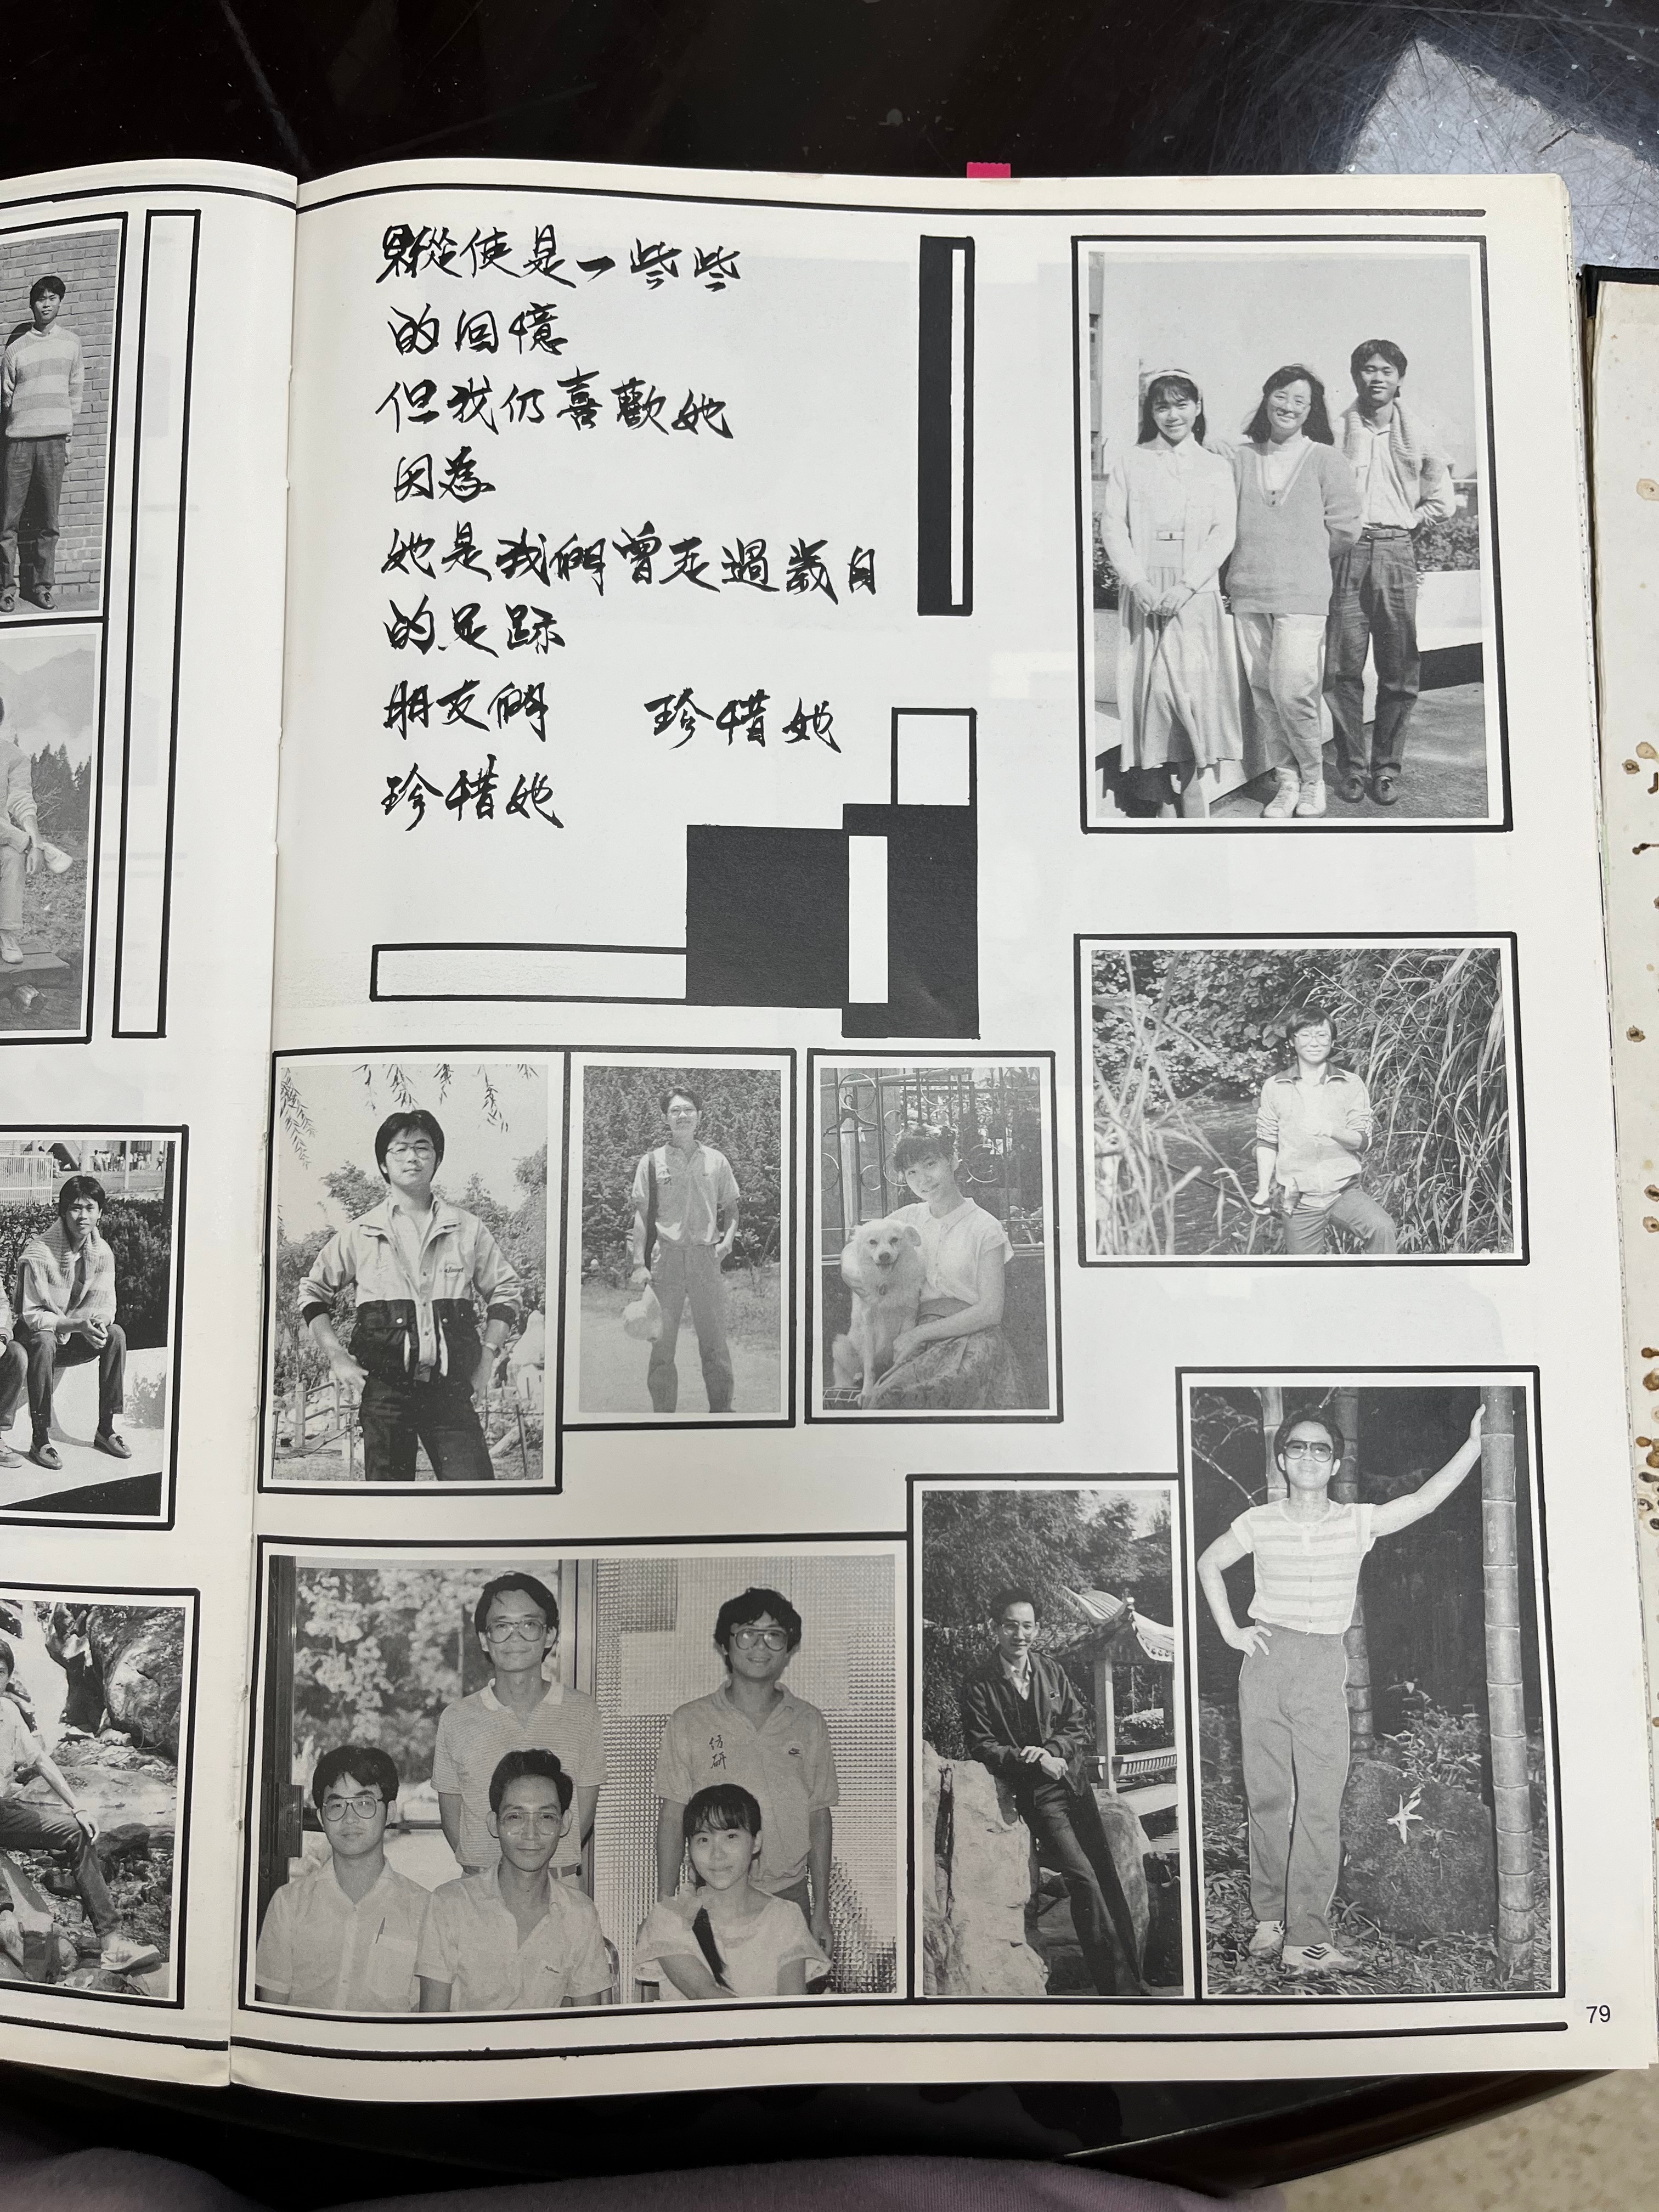 縱使是一些些
的回憶
但我仍喜歡她
因為
她是我們曾走過歲月
的足跡
朋友們 珍惜她
珍惜她
仿
研
79